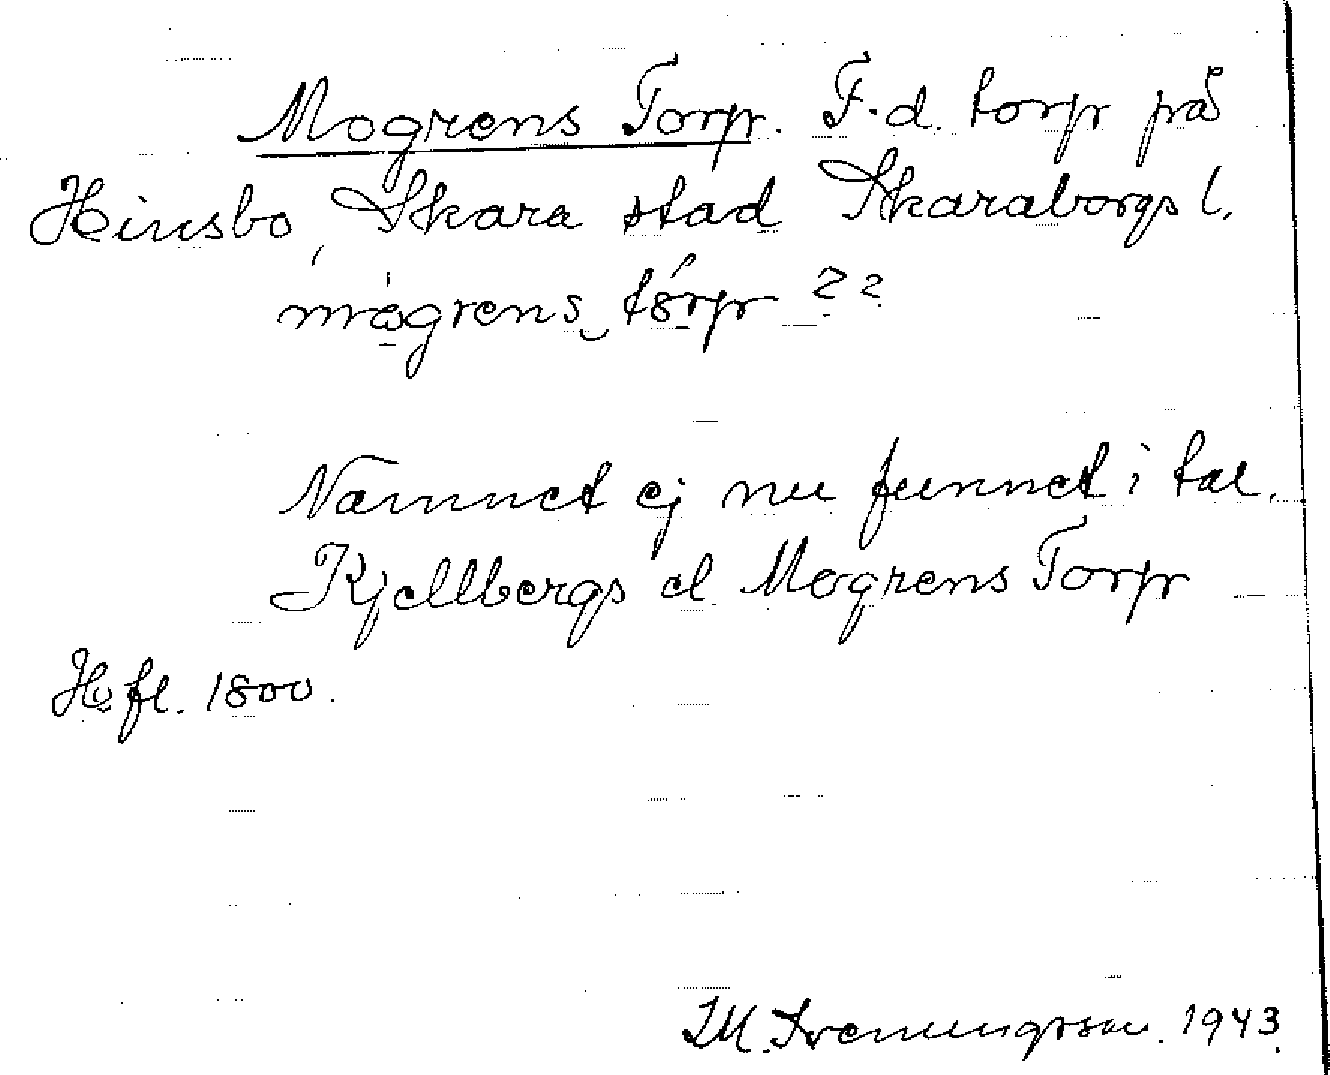 Mogrens Torp. F.d. torp på
Hinsbo, Skara stad Skaraborgs l.
mo̱grens‿tórp ??
Namnet ej nu funnet i tal.
Kjellbergs el Mogrens Torp
Hfl. 1800.
1943.